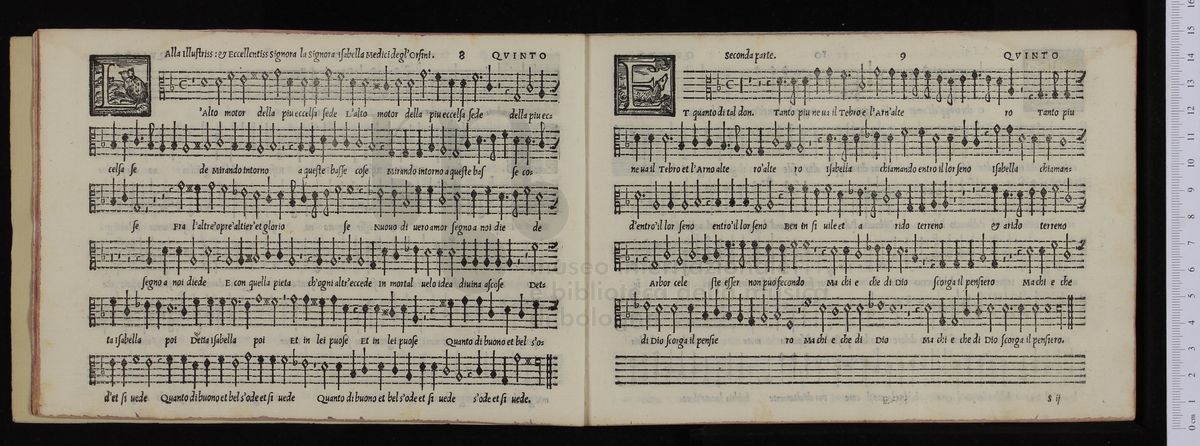 Alla Illustriss: & Eccellentiss Signora la Signora Isabella Medici degl'Orsini. 8 QVINTO
L'Alto motor della piu eccelsa sede L'alto motor della piu eccelsa sede della piu ec=
celsa se de Mirando intorno a queste basse cose Mirando intorno a queste bas se co=
se Fra l'altre'opre'altier'et glorio se Nuouo di uero amor segno a noi die de
segno a noi diede E con quella pieta ch'ogni altr'eccede in mortal uelo idea diuina ascose Dett=
ta Isabella poi Detta Isabella poi Et in lei puose Et in lei puose Quanto di buono et bel s'o=
d'et si uede Quanto di buono et bel s'ode et si uede Quanto di buono et bel s'ode et si uede s'ode et si uede.
Seconda parte. 9 QVINTO
ET quanto di tal don. Tanto piu ne ua il Tebro e l'Arn'alte ro Tanto piu
ne ua il Tebro et l'Arno alte ro'alte ro Isabella chiamando entro il lor seno Isabella chiaman=
d'entro'il lor seno entro'il lor seno Ben in si uile et a rido terreno & arido terreno
Arbor cele ste esser non puo fecondo Ma chi e che di Dio scorga il pensiero Ma chi e che
di Dio scorga il pensie ro Ma chi e che di Dio Ma chi e che di Dio scorga il pensiero.
S ij